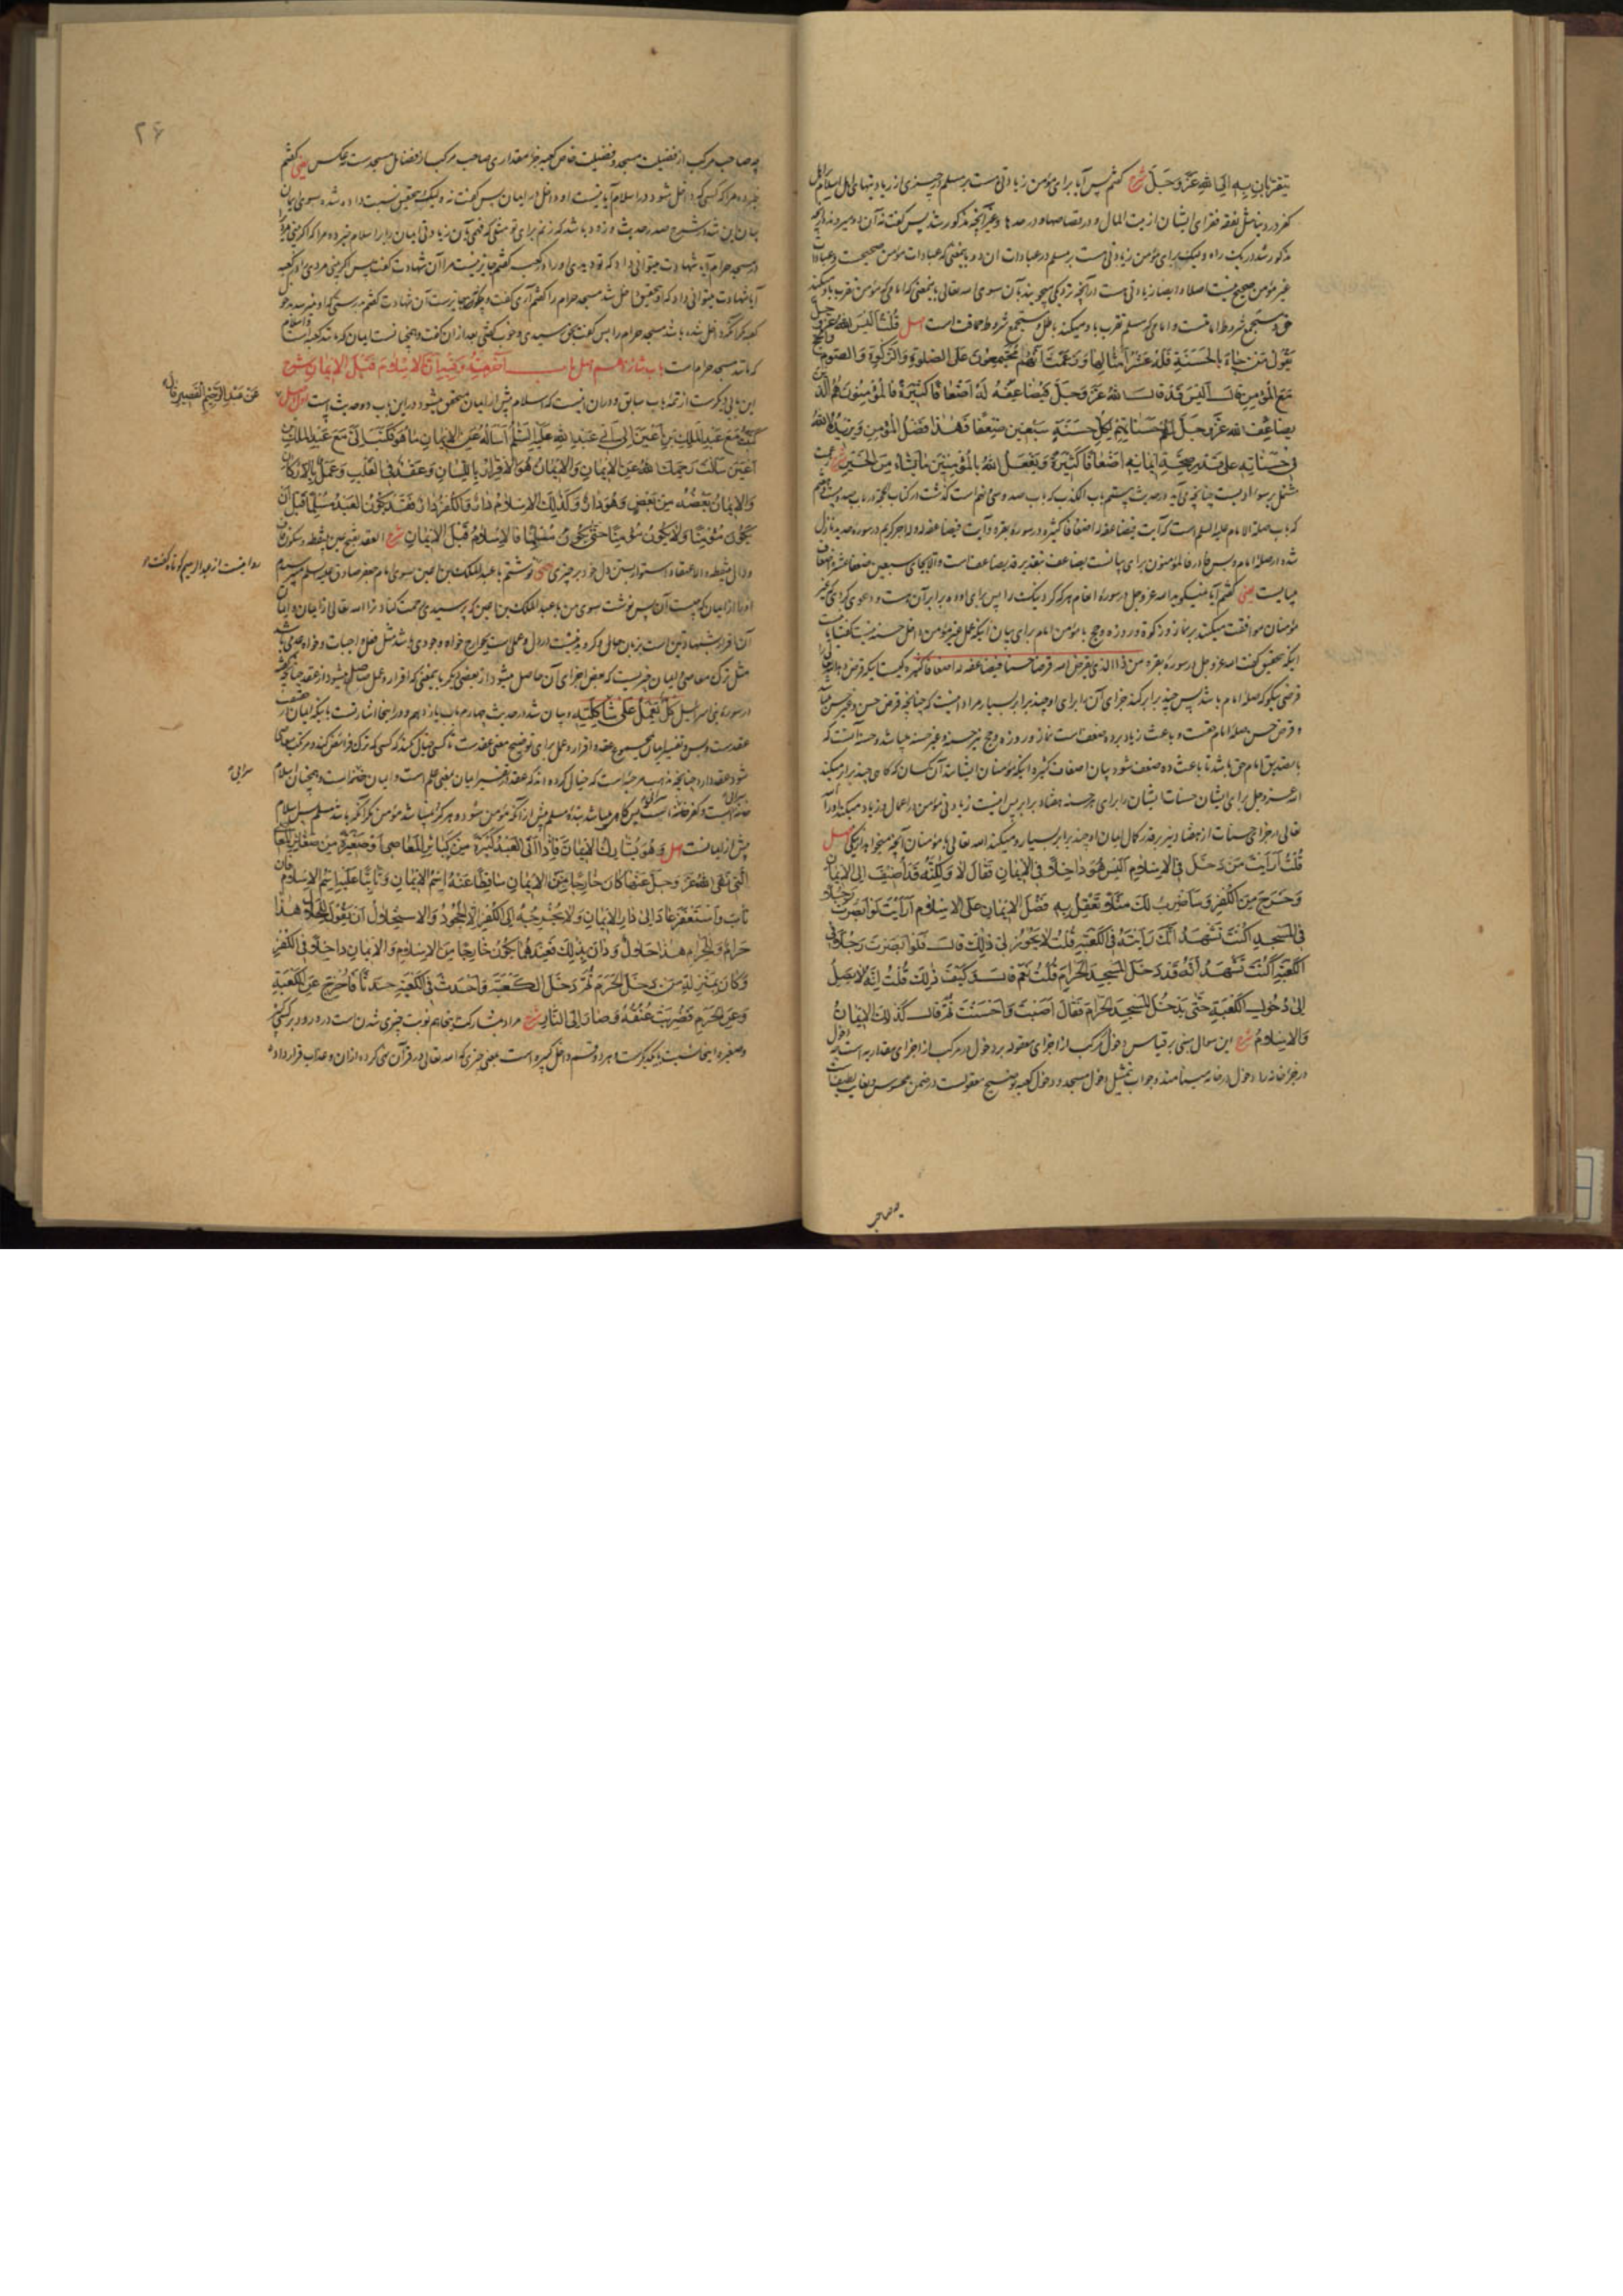 یتقربان به الی الله عَزَّ وَجَلَّ شرح گفتم پس آیا برای مؤمن زیادتی هست بر مسلم در چیزی از
کفر در دنیا مثل نفقه فقرای ایشان از بیت المال و در قصاصها و در حدها و غیر آنچه مذکور شد پس گفت نه آن دو
مذکور شد در یک راه و لیک برای مؤمن زیادتی هست بر مسلم در عبادات آن دو باینمعنی که عبادات مؤمن صحیحست و عبادات
غیر مؤمن صحیح نیست اصلا و ایضا زیادتی هست در آنچه نزدیکی میجویند بآن سوی الله تعالی باینمعنی که امامی که مؤمن تقرب باو میکند
حق و مستجمع شروط امامتست و امامی که مسلم تقرب باو میکند باطل و مستجمع شروط حماقت است اصل قُلْتُ اَلَیْسَ اللهُ عَزَّ وَجَلَّ
یَقُولُ مَنْ جَاءَ بِالْحَسَنَةِ فَلَهُ عَشْرُ اَمْثَالِهَا وَزَعَمْتَ اَنَّهُمْ مُجْتَمِعُونَ عَلَی الصَّلوةِ وَالزَّکوةِ وَالصَّوْمِ وَالْحَجِّ
مَعَ الْمُؤْمِنِ قَالَ اَلَیْسَ قَدْ قَالَ اللهُ عَزَّ وَجَلَّ فَیُضَاعِفَهُ لَهُ اَضْعَافًا کَثِیرَةً فَالْمُؤْمِنُونَ هُمُ الَّذِینَ
یُضَاعِفُ اللهُ عَزَّ وَجَلَّ لَهُمْ حَسَنَاتِهِمْ لِکُلِّ حَسَنَةٍ سَبْعِینَ ضِعْفًا فَهٰذَا فَضْلُ الْمُؤْمِنِ وَیَزِیدُهُ اللهُ
فِی حَسَنَاتِهِ عَلَی قَدْرِ صِحَّةِ اِیمَانِهِ اَضْعَافًا کَثِیرَةً وَیَفْعَلُ اللهُ بِالْمُؤْمِنِینَ مَا یَشَاءُ مِنَ الْخَیْرِ شرح
که باب صلة الامام علیه السلم است که آیت فیضاعفه له اضعافا کثیرة در سورهٔ بقره و آیت فیضاعفه له وله اجر کریم در سورهٔ حدید نازل
شده در صلهٔ امام و بس فا در فالمؤمنون برای بیانست یضاعف بتقدیر قد یضاعف است
میبایست یعنی گفتم آیا نمیگوید الله عز وجل در سورهٔ انعام هر که کرد نیک را پس برای او ده برابر آن هست و دعوی کردی که غیر
مؤمنان موافقت میکنند بر نماز و زکوة و روزه و حج با مؤمن امام برای بیان اینکه عمل غیر مؤمن داخل حسنه نیست گفت آیا نیست
اینکه بتحقیق گفت الله عز وجل در سورهٔ بقره من ذا الذی یقرض الله قرضا حسنا فیضاعفه له اضعافا کثیرة کیست اینکه قرض دهد الله را
قرضی نیکو که صلهٔ امام باشد پس چند برابر کند جزای آن را برای او چند برابر بسیار مراد اینست که چنانچه قرض حسن و غیر حسن میباشد
و قرض حسن صلهٔ امام حقست و باعث زیاد بر ده ضعف است نماز و روزه و حج نیز حسنه و غیر حسنه میباشد و حسنه آنست که
با تصدیق امام حق باشد تا باعث ده ضعف شود بیان اضعاف کثیره اینکه مؤمنان ایشانند آن کسان که گاهی چند برابر میکند
الله عز وجل برای ایشان حسنات ایشان را برای هر حسنه هفتاد برابر پس اینست زیادتی مؤمن در اعمال و زیاد میکند او را
تعالی در جزای حسنات از هفتاد و نیز بر قدر کمال ایمان او چند برابر بسیار و میکند الله تعالی با مؤمنان آنچه میخواهد از نیکی اصل
قُلْتُ اَرَاَیْتَ مَنْ دَخَلَ فِی الْاِسْلَامِ اَلَیْسَ هُوَ دَاخِلًا فِی الْاِیمَانِ فَقَالَ لَا وَلٰکِنَّهُ قَدْ اُضِیفَ اِلَی الْاِیمَانِ
وَخَرَجَ مِنَ الْکُفْرِ وَسَاَضْرِبُ لَکَ مَثَلًا تَعْقِلُ بِهِ فَضْلَ الْاِیمَانِ عَلَی الْاِسْلَامِ اَرَاَیْتَ لَوْ اَبْصَرْتَ رَجُلًا
فِی الْمَسْجِدِ اَکُنْتَ تَشْهَدُ اَنَّکَ رَاَیْتَهُ فِی الْکَعْبَةِ قُلْتُ لَا یَجُوزُ لِی ذٰلِکَ قَالَ فَلَوْ اَبْصَرْتَ رَجُلًا فِی
الْکَعْبَةِ اَکُنْتَ تَشْهَدُ اَنَّهُ قَدْ دَخَلَ الْمَسْجِدَ الْحَرَامَ قُلْتُ نَعَمْ قَالَ وَکَیْفَ ذٰلِکَ قُلْتُ اِنَّهُ لَا یَصِلُ
اِلَی دُخُولِ الْکَعْبَةِ حَتَّی یَدْخُلَ الْمَسْجِدَ الْحَرَامَ فَقَالَ اَصَبْتَ وَاَحْسَنْتَ ثُمَّ قَالَ کَذٰلِکَ الْاِیمَانُ
وَالْاِسْلَامُ شرح این سوال مبنی بر قیاس دخول مرکب از اجزای معقوله بر دخول در مرکب از اجزای مقداریه است
در جزو خانه را دخول در خانه مینامند و جواب تمثیل دخول مسجد و دخول کعبه توضیح معقولست در ضمن محسوس
چه صاحب
۲۶
چه صاحب مرکب از فضیلت مسجد و فضیلت خاص کعبه جزء مقداری صاحب مرکب از فضایل مسجدست نه عکس یعنی گفتم
خبر ده مرا که کسی که داخل شود در اسلام آیا نیست او داخل در ایمان پس گفت نه و لیک بتحقیق نسبت داده شده سوی ایمان
بیان این شد در شرح صدر حدیث و زود باشد که زنم برای تو مثلی که فهمی بآن زیادتی ایمان را بر اسلام خبر ده مرا که اگر بینی مردی را
در مسجد حرام آیا شهادت میتوانی داد که تو دیدی او را در کعبه گفتم جایز نیست مرا آن شهادت گفت پس اگر بینی مردی را در کعبه
آیا شهادت میتوانی داد که او بتحقیق داخل شد مسجد حرام را گفتم آری گفت و چگونه جایزست آن شهادت گفتم بدرستی که او نمیرسد بدخول
کعبه مگر آنکه داخل شده باشد مسجد حرام را پس گفت بحق رسیدی و خوب گفتی بعد از آن گفت و همچنانست ایمان که مانند کعبه است و اسلام
که مانند مسجد حرام است باب شانزدهم اصل بَابٌ آخَرُ مِنْهُ وَفِیهِ اَنَّ الْاِسْلَامَ قَبْلَ الْاِیمَانِ شرح
این بابی دیگرست از تتمهٔ باب سابق و در آن اینست که اسلام پیش از ایمان متحقق میشود در این باب دو حدیث است اول اصل
عَنْ عَبْدِ الرَّحِیمِ الْقَصِیرِ قَالَ
کَتَبْتُ مَعَ عَبْدِ الْمَلِکِ بْنِ اَعْیَنَ اِلَی اَبِی عَبْدِ اللهِ عَلَیْهِ السَّلَمُ اَسْاَلُهُ عَنِ الْاِیمَانِ مَا هُوَ فَکَتَبَ اِلَیَّ مَعَ عَبْدِ الْمَلِکِ بْنِ
اَعْیَنَ سَاَلْتَ رَحِمَکَ اللهُ عَنِ الْاِیمَانِ وَالْاِیمَانُ هُوَ الْاِقْرَارُ بِاللِّسَانِ وَعَقْدٌ فِی الْقَلْبِ وَعَمَلٌ بِالْاَرْکَانِ
وَالْاِیمَانُ بَعْضُهُ مِنْ بَعْضٍ وَهُوَ دَارٌ وَکَذٰلِکَ الْاِسْلَامُ دَارٌ وَالْکُفْرُ دَارٌ فَقَدْ یَکُونُ الْعَبْدُ مُسْلِمًا قَبْلَ اَنْ
یَکُونَ مُؤْمِنًا وَلَا یَکُونُ مُؤْمِنًا حَتَّی یَکُونَ مُسْلِمًا فَالْاِسْلَامُ قَبْلَ الْاِیمَانِ شرح العقد بفتح عین بینقطه و سکون قاف
روایتست از عبد الرحیم کوتاه گفت
و دال بینقطه الاعتقاد و استوار بستن دل خود بر چیزی یعنی نوشتم با عبد الملک بن اعین سوی امام جعفر صادق علیه السلم میپرسیدم
او را از ایمان که چیست آن پس نوشت سوی من با عبد الملک بن اعین که پرسیدی رحمت کناد ترا الله تعالی از ایمان و ایمان
آن اقرار بشهادتین است بزبان حال و گرویدنیست در دل و عملی است بجوارح خواه وجودی باشد مثل فعل واجبات و خواه عدمی باشد
مثل ترک معاصی و ایمان چیزیست که بعض اجزای آن حاصل میشود از بعضی دیگر باینمعنی که اقرار و عمل حاصل میشود از عقد چنانچه گفته
در سورهٔ بنی اسرائیل کُلٌّ یَعْمَلُ عَلَی شَاکِلَتِهِ و بیان شد در حدیث چهارم باب یازدهم و در اینجا اشارتست باینکه ایمان در حقیقت
عقدست و بس و تفسیر ایمان بمجموع عقد و اقرار و عمل برای توضیح معنی عقدست تا کسی خیال نکند که کسی که ترک فرائض کند و مرتکب معاصی
شود عقد دارد چنانچه مذهب مرجئه است که خیال کرده اند که عقد در تفسیر ایمان بمعنی علم است و ایمان خانه است و همچنان اسلام
سرایی
خانه است و کفر خانه است پس گاهی میباشد بندهٔ مسلم پیش از آنکه مؤمن شود و هرگز نمیباشد مؤمن مگر آنکه باشد مسلم پس اسلام
پیش از ایمانست اصل وَهُوَ یُشَارِکُ الْاِیمَانَ فَاِذَا اَتَی الْعَبْدُ کَبِیرَةً مِنْ کَبَائِرِ الْمَعَاصِی اَوْ صَغِیرَةً مِنْ صَغَائِرِ الْمَعَاصِی
الَّتِی نَهَی اللهُ عَزَّ وَجَلَّ عَنْهَا کَانَ خَارِجًا مِنَ الْاِیمَانِ سَاقِطًا عَنْهُ اِسْمُ الْاِیمَانِ وَثَابِتًا عَلَیْهِ اِسْمُ الْاِسْلَامِ فَاِنْ
تَابَ وَاسْتَغْفَرَ عَادَ اِلَی دَارِ الْاِیمَانِ وَلَا یُخْرِجُهُ اِلَی الْکُفْرِ اِلَّا الْجُحُودُ وَالْاِسْتِحْلَالُ اَنْ یَقُولَ لِلْحَلَالِ هٰذَا
حَرَامٌ وَلِلْحَرَامِ هٰذَا حَلَالٌ وَدَانَ بِذٰلِکَ فَعِنْدَهَا یَکُونُ خَارِجًا مِنَ الْاِسْلَامِ وَالْاِیمَانِ دَاخِلًا فِی الْکُفْرِ
وَکَانَ بِمَنْزِلَةِ مَنْ دَخَلَ الْحَرَمَ ثُمَّ دَخَلَ الْکَعْبَةَ وَاَحْدَثَ فِی الْکَعْبَةِ حَدَثًا فَاُخْرِجَ عَنِ الْکَعْبَةِ
وَعَنِ الْحَرَمِ فَضُرِبَتْ عُنُقُهُ وَصَارَ اِلَی النَّارِ شرح مراد بمشارکت اینجا هم نوبت چیزی شدن است در ورود بر کسی
و صغیره اینجا نسبت بیکدیگرست و هر دو قسم داخل کبیره است بمعنی چیزی که الله تعالی در قرآن نهی کرده از آن و عذاب قرار داده